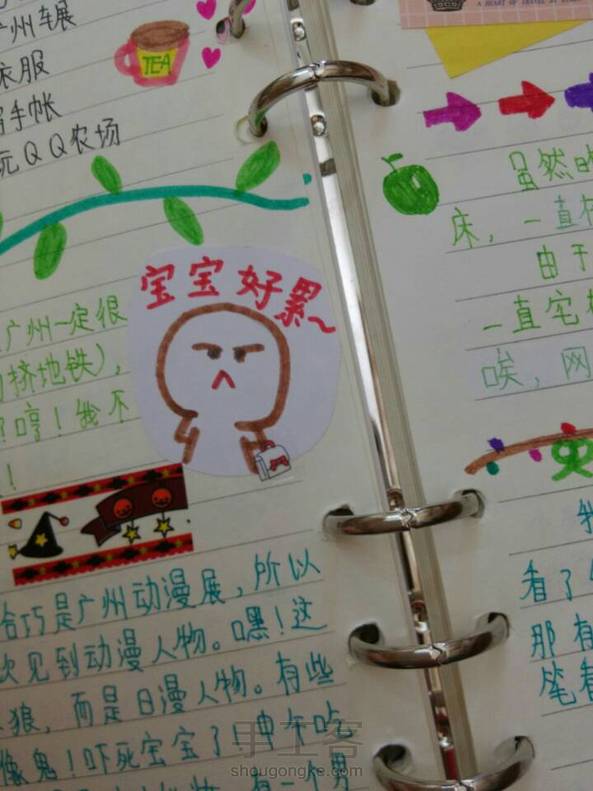 广州车展
衣服
手帐
玩QQ农场
TEA
宝宝好累~
广州一定很
挤地铁),
哼!我不
!
恰巧是广州动漫展,所以
次见到动漫人物。嘿!这
狼,而是日漫人物。有些
像鬼!吓死宝宝了!
有一个男
A HEART OF TRAVEL
虽然
床,一直
由于
一直宅
唉,网
我
看了
那有
笔着
手工客
shougongke.com